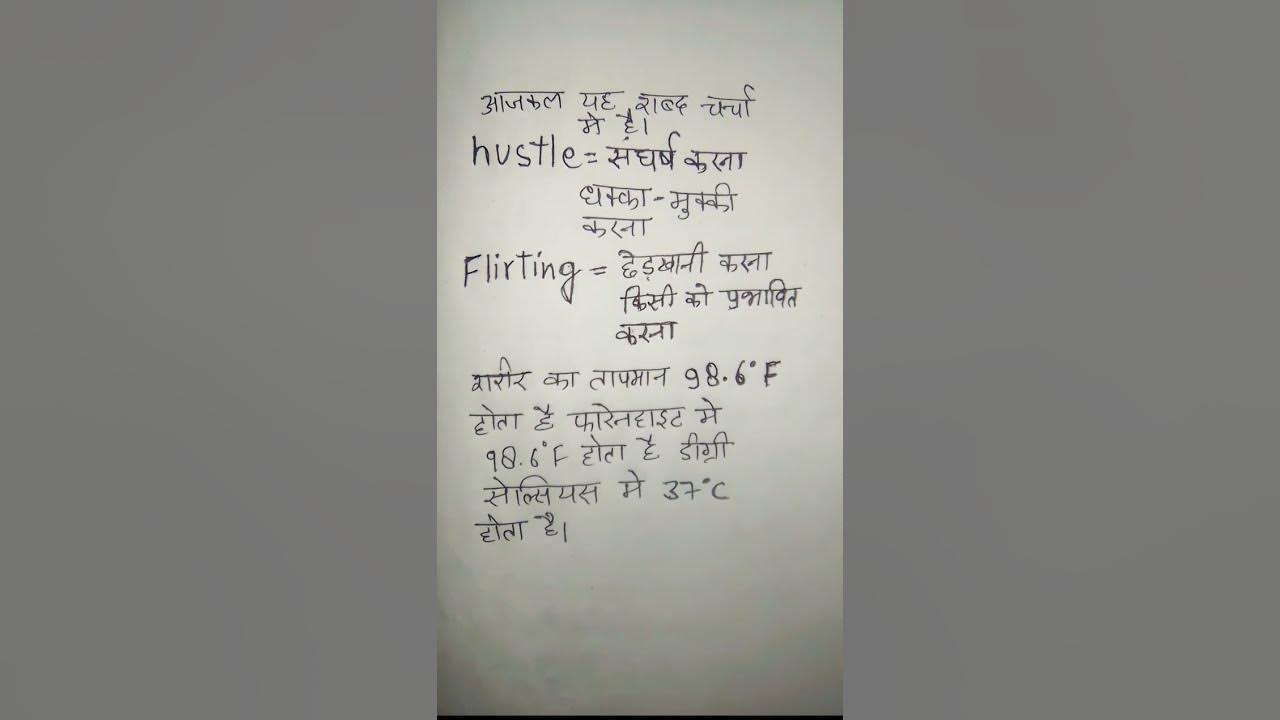 आजकल यह शब्द चर्चा
मे है।
hustle = संघर्ष करना
धक्का - मुक्की
करना
Flirting = छेड़खानी करना
किसी को प्रभावित
करना
शरीर का तापमान 98.6°F
होता है फारेनहाइट मे
98.6°F होता है डीग्री
सेल्सियस मे 37°C
होता है।